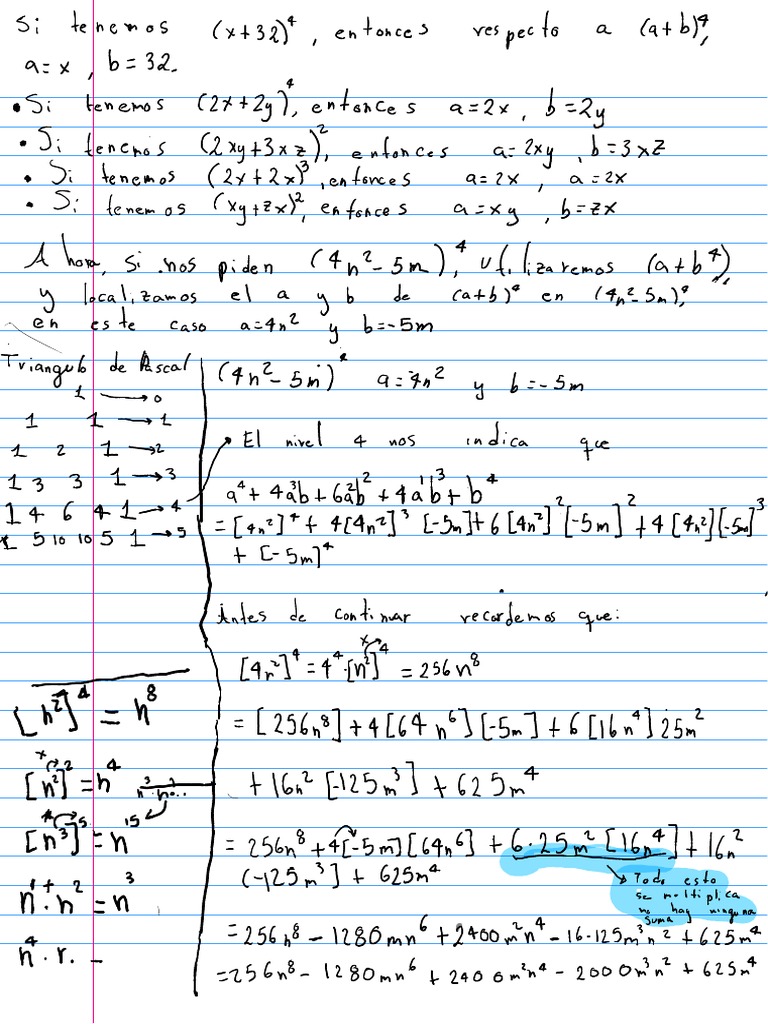 Si tenemos (x+32)⁴, entonces respecto a (a+b)⁴,
a=x, b=32.
• Si tenemos (2x+2y)⁴, entonces a=2x, b=2y
• Si tenemos (2xy+3xz)², entonces a=2xy, b=3xz
• Si tenemos (2x+2x)³, entonces a=2x, a=2x
• Si tenemos (xy+zx)², entonces a=xy, b=zx
Ahora, si nos piden (4n²-5m)⁴, utilizaremos (a+b⁴),
y localizamos el a y b de (a+b)⁴ en (4n²-5m)⁴,
en este caso a=4n² y b=-5m
Triangulo de Pascal
1 → 0
1 1 → 1
1 2 1 → 2
1 3 3 1 → 3
1 4 6 4 1 → 4
1 5 10 10 5 1 → 5
[n²]⁴ = n⁸
x
[n²]² = n⁴
n³·n³...
[n³]⁵ = n¹⁵
n¹·n² = n³
n⁴·r. -
(4n²-5m)⁴ a=4n² y b=-5m
• El nivel 4 nos indica que
a⁴+4a³b+6a²b²+4a¹b³+b⁴
=[4n²]⁴+4[4n²]³[-5m]+6[4n²]²[-5m]²+4[4n²][-5m]³
+[-5m]⁴
Antes de continuar recordemos que:
x
[4n²]⁴=4⁴·[n²]⁴=256n⁸
=[256n⁸]+4[64n⁶][-5m]+6[16n⁴]25m²
+16n²[-125m³]+625m⁴
=256n⁸+4[-5m][64n⁶]+6·25m²[16n⁴]+16n²
(-125m³]+625m⁴
Todo esto
se multiplica
no hay ninguna
suma
=256n⁸-1280mn⁶+2400m²n⁴-16·125m³n²+625m⁴
=256n⁸-1280mn⁶+2400m²n⁴-2000m³n²+625m⁴